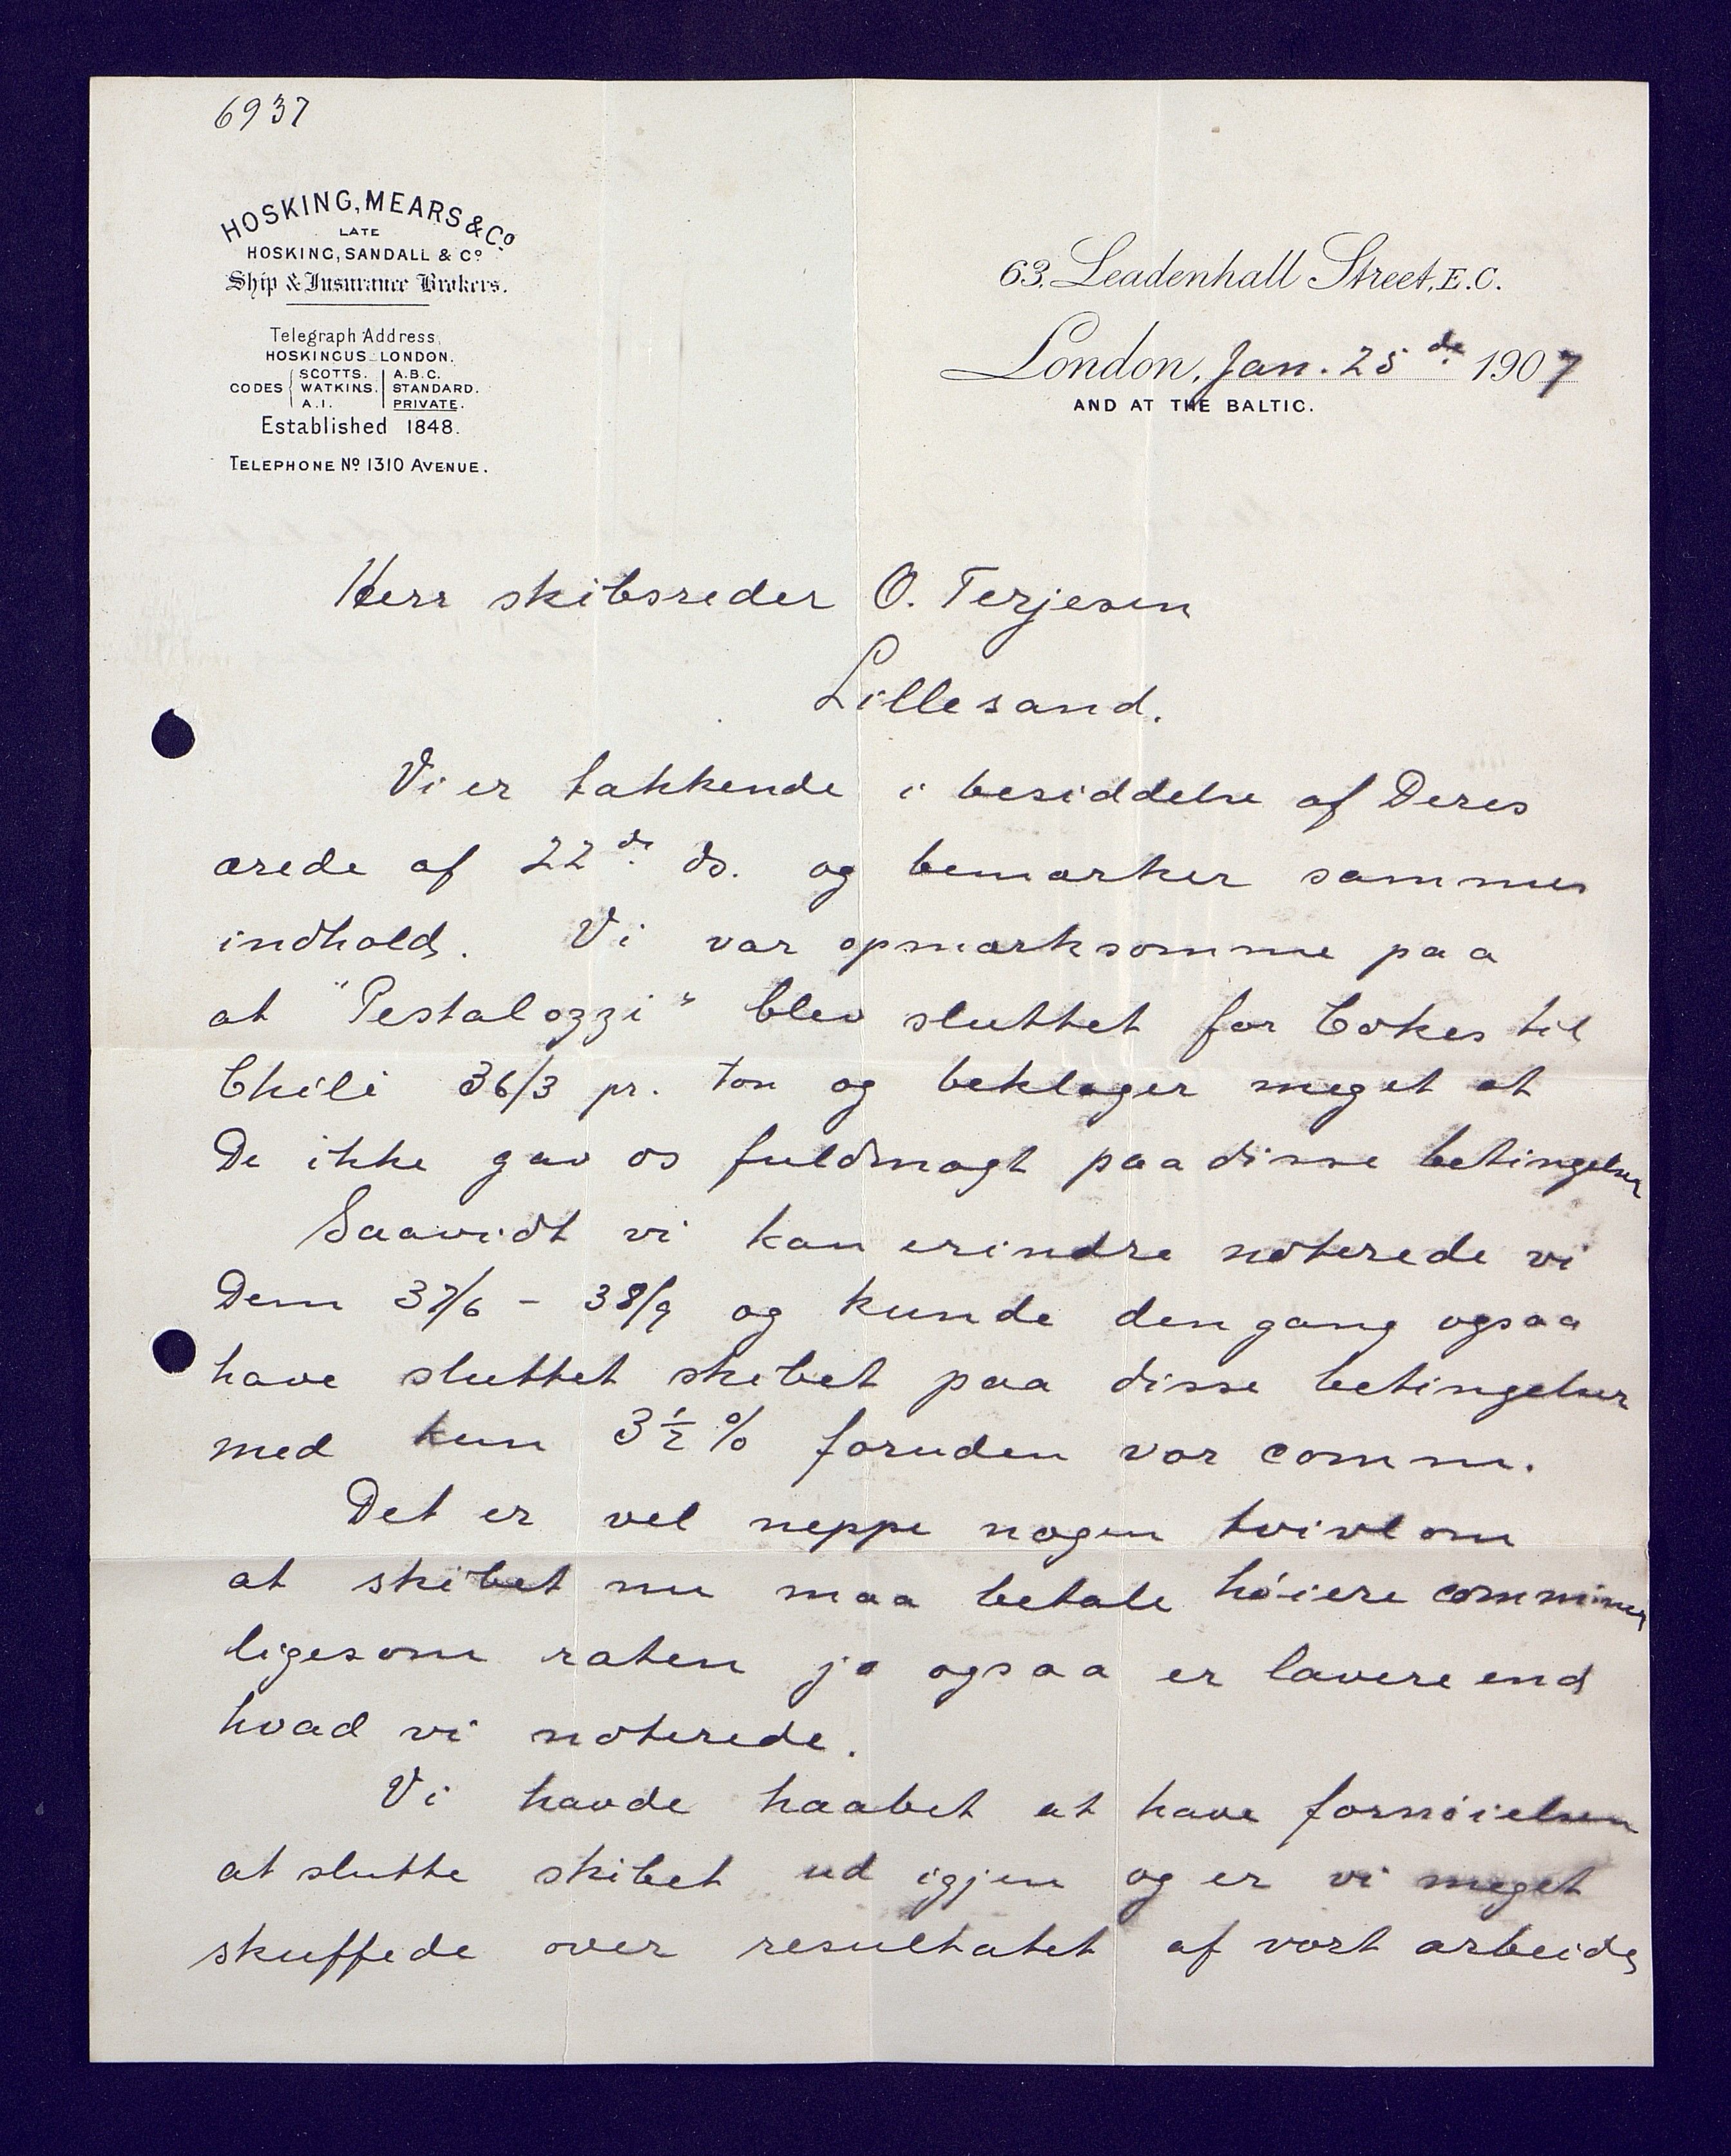 6937
HOSKING, MEARS & Cº
LATE
HOSKING, SANDALL & Cº
Ship & Insurance Brokers.
Telegraph Address,
HOSKINGUS_LONDON.
CODES SCOTTS. A.B.C.
WATKINS. STANDARD.
A.I. PRIVATE.
Established 1848.
TELEPHONE Nº 1310 AVENUE.
63, Leadenhall Street, E.C.
London, Jan. 25 de 1907
AND AT THE BALTIC.
Herr skibsreder O. Terjesen
Lillesand.
Vi er takkende i besiddelse af Deres
ærede af 22 de ds. og bemærker sammes
indhold. Vi var opmærksomme paa
at "Pestalozzi" blev sluttet for Cokes til
Chili 36/3 pr. ton og beklager meget at
De ikke gav os fuldmagt paa disse betingelser
Saavidt vi kan erindre noterede vi
Dem 37/6 - 38/9 og kunde dengang ogsaa
have sluttet skibet paa disse betingelser
med kun 3½% foruden vor comm.
Det er vel neppe nogen tvivl om
at skibet nu maa betale høiere
ligesom raten jo ogsaa er lavere end
hvad vi noterede.
Vi havde haabet at have fornøielsen
at slutte skibet ud igjen og er vi meget
skuffede over resultatet af vort arbeide